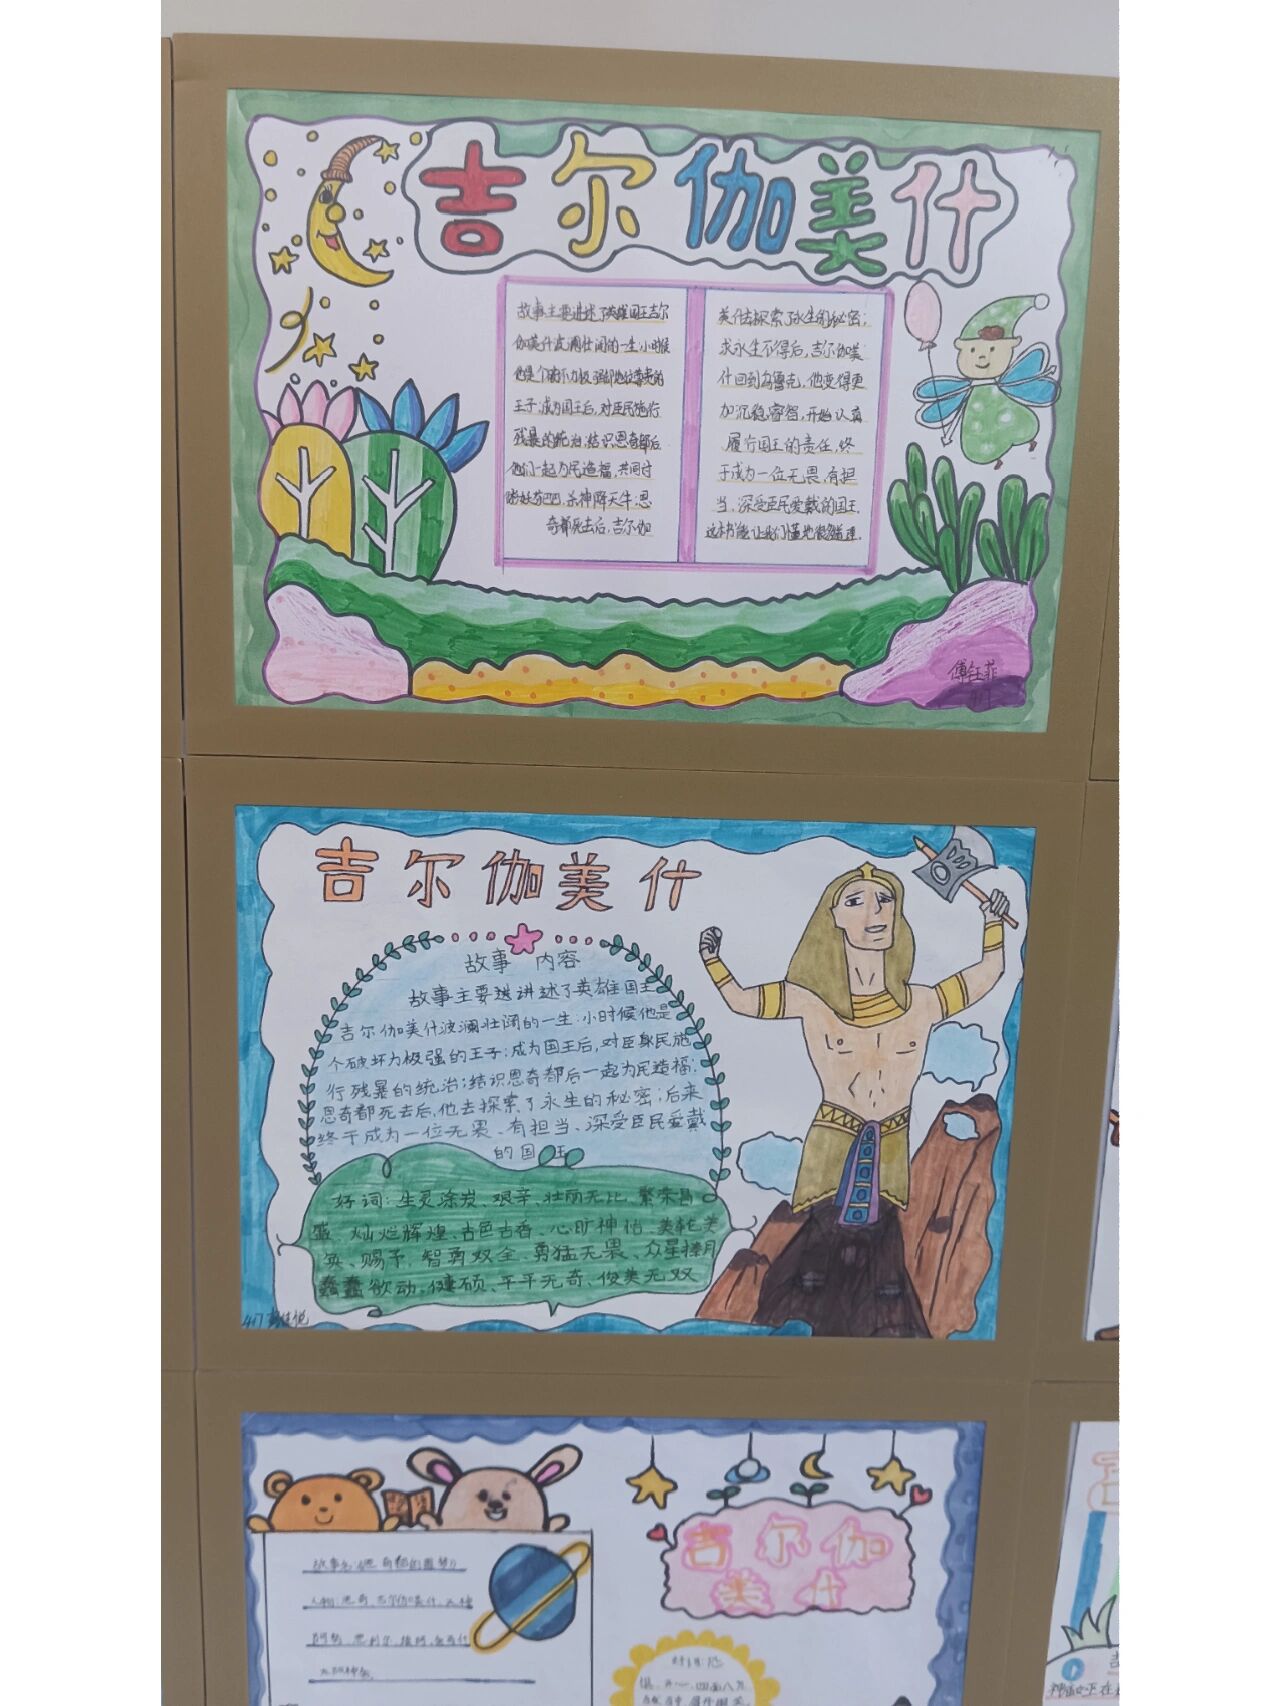 吉尔伽美什
故事主要讲述了英雄国王吉尔
伽美什波澜壮阔的一生:小时候
王子;成为国王后,对臣民施行
残暴的统治;结识恩奇都后
他们一起为民造福,共同讨
杀神降天牛;恩
奇都死去后,吉尔伽
美什去探索了永生的秘密;
求永生不得后,吉尔伽美
什回到乌鲁克,他变得更
加沉稳睿智,开始认真
履行国王的责任,终
于成为一位无畏、有担
当、深受臣民爱戴的国王.
这本书能让我们懂地很多道理.
傅钰菲
吉尔伽美什
故事 内容
故事主要讲述了英雄国王
吉尔伽美什波澜壮阔的一生:小时候他是
个破坏力极强的王子;成为国王后,对臣民施
行残暴的统治;结识恩奇都后一起为民造福;
恩奇都死去后,他去探索了永生的秘密;后来
终于成为一位无畏、有担当、深受臣民爱戴
的国王
好词:生灵涂炭、艰辛、壮丽无比、繁荣昌
盛、灿烂辉煌、古色古香、心旷神怡、美轮美
奂、赐予、智勇双全、勇猛无畏、众星捧月
蠢蠢欲动、健硕、平平无奇、俊美无双
吉尔伽
美什